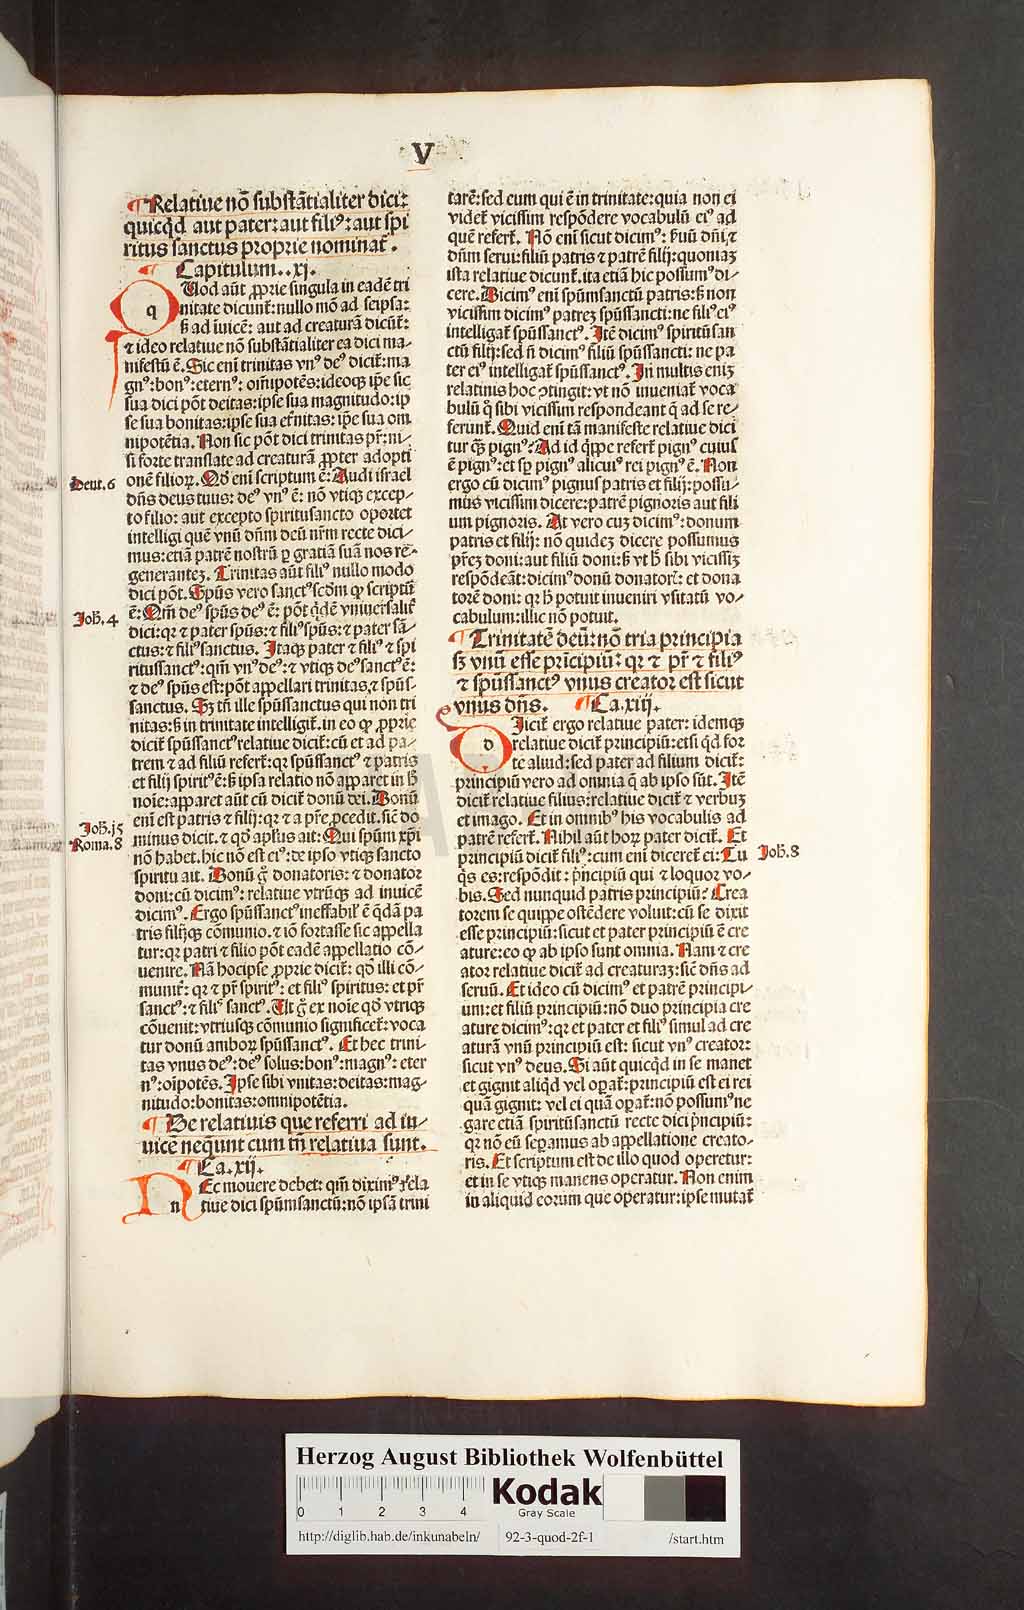 V
¶Relatiue nõ substãtialiter dici:
quicq̃d aut pater: aut fili⁹: aut spi
ritus sanctus proprie nominat̃.
¶ Capitulum..xi.
qUod aũt ꝓprie singula in eadẽ tri
nitate dicunt̃: nullo mõ ad seipsa:
ß ad ĩuicẽ: aut ad creaturã dicũt̃:
⁊ ideo relatiue nõ substãtialiter ea dici ma-
nifestũ ẽ. Sic eni trinitas vn⁹ de⁹ dicit̃: ma
gn⁹: bon⁹: etern⁹: oĩpotẽs: ideoqꝫ ip̃e sic
sua dici põt deitas: ipse sua magnitudo: ip
se sua bonitas: ipse sua et̃nitas: ip̃e sua om
nipotẽtia. Non sic põt dici trinitas pr̃: ni-
si forte translate ad creaturã ꝓpter adopti
onẽ filioꝝ. Qđ eni scriptum ẽ: Audi israel
dñs deus tuus: de⁹ vn⁹ ẽ: nõ vtiqꝫ excep-
to filio: aut excepto spiritusancto oportet
intelligi quẽ vnũ dñm deũ nr̃m recte dici-
mus: etiã patrẽ nostrũ ꝑ gratiã suã nos re-
generantẽ. Trinitas aũt fili⁹ nullo modo
dici põt. Spũs vero sanct⁹ scd̃m ꝙ scriptũ
ẽ: Qm̃ de⁹ spũs de⁹ ẽ: põt q̃dẽ vniuersalit̃
dici: qꝛ ⁊ pater spũs: ⁊ fili⁹ spũs: ⁊ pater sã-
ctus: ⁊ fili⁹ sanctus. Itaqꝫ pater ⁊ fili⁹ ⁊ spi
ritussanct⁹: qm̃ vn⁹ de⁹: ⁊ vtiqꝫ de⁹ sanct⁹ ẽ:
⁊ de⁹ spũs est: põt appellari trinitas, ⁊ spũs-
sanctus. Sꝫ tñ ille spũssanctus qui non tri
nitas: ß in trinitate intelligit̃. in eo ꝙ ꝓprie
dicit̃ spũssanct⁹ relatiue dicit̃: cũ et ad pa-
trem ⁊ ad filiũ refert̃: qꝛ spũssanct⁹ ⁊ patris
et filij spirit⁹ ẽ: ß ipsa relatio nõ apparet in h̃
noĩe: apparet aũt cũ dicit̃ donũ dei. Donũ
eni est patris ⁊ filij: qꝛ ⁊ a pr̃e ꝓcedit. sic̃ do
minus dicit. ⁊ qđ apl̃us ait: Qui spũm xp̃i
nõ habet. hic nõ est ei⁹: de ipso vtiqꝫ sancto
spiritu ait. Donũ g̃ donatoris: ⁊ donator
doni: cũ dicim⁹: relatiue vtrũqꝫ ad inuicẽ
dicim⁹. Ergo spũssanct⁹ ineffabil̃ ẽ q̃dã pa
tris filijqꝫ cõmunio. ⁊ iõ fortasse sic appella
tur: qꝛ patri ⁊ filio põt eadẽ appellatio cõ-
uenire. Nã hocipse ꝓprie dicit̃: qđ illi cõ-
munit̃: qꝛ ⁊ pr̃ spirit⁹: et fili⁹ spiritus: et pr̃
sanct⁹: ⁊ fili⁹ sanct⁹. Ut g̃ ex noĩe qđ vtriqꝫ
cõuenit: vtriusqꝫ cõmunio significet̃: voca
tur donũ amboꝝ spũssanct⁹. Et hec trini-
tas vnus de⁹: de⁹ solus: bon⁹: magn⁹: eter
n⁹: oĩpotẽs. Ipse sibi vnitas: deitas: mag-
nitudo: bonitas: omnipotẽtia.
¶ De relatiuis que referri ad in-
uicẽ neq̃unt cum tñ relatiua sunt.
¶ Ca.xij.
nEc mouere debet: qm̃ diximus rela
tiue dici spũmsanctũ: nõ ipsã trini
Deut.6
Joh̃.4
Joh̃.15
Roma.8
tarẽ: sed eum qui ẽ in trinitate: quia non ei
videt̃ vicissim respõdere vocabulũ ei⁹ ad
quẽ refert̃. Nõ eni sicut dicim⁹: ßuũ dñi, ⁊
dñm serui: filiũ patris ⁊ patrẽ filij: quoniaꝫ
ista relatiue dicunt̃. ita etiã hic possum⁹ di-
cere. Dicim⁹ eni spũmsanctũ patris: ß non
vicissim dicim⁹ patreꝫ spũssancti: ne fili⁹ ei⁹
intelligat̃ spũssanct⁹. Itẽ dicim⁹ spiritũ san
ctũ filij: sed ñ dicim⁹ filiũ spũssancti: ne pa
ter ei⁹ intelligat̃ spũssanct⁹. In multis eniꝫ
relatiuis hoc ↄtingit: vt nõ inueniat̃ voca
bulũ q̃ sibi vicissim respondeant q̃ ad se re-
ferunt̃. Quid eni tã manifeste relatiue dici
tur qꝫ pign⁹: Ad id q̃ppe refert̃ pign⁹ cuius
ẽ pign⁹: et sp̃ pign⁹ alicui⁹ rei pign⁹ ẽ. Non
ergo cũ dicim⁹ pignus patris et filij: possu-
mus vicissim dicere: patrẽ pignoris aut fili
um pignoris. At vero cuꝫ dicim⁹: donum
patris et filij: nõ quideꝫ dicere possumus
pr̃eꝫ doni: aut filiũ doni: ß vt h̃ sibi vicissiꝫ
respõdeãt: dicim⁹ donũ donatoris: et dona
torẽ doni: qꝛ h̃ potuit inueniri vsitatũ vo-
cabulum: illic nõ potuit.
¶ Trinitatẽ deũ: nõ tria principia
sꝫ vnũ esse prĩcipiũ: qꝛ ⁊ pr̃ ⁊ fili⁹
⁊ spũssanct⁹ vnus creator est sicut
vnus dñs. ¶ Ca.xiij.
dIicit̃ ergo relatiue pater: idemqꝫ
relatiue dicit̃ principiũ: etsi q̃d for
te aliud: sed pater ad filium dicit̃:
principiũ vero ad omnia q̃ ab ipso sũt. Itẽ
dicit̃ relatiue filius: relatiue dicit̃ ⁊ verbuꝫ
et imago. Et in omnib⁹ his vocabulis ad
patrẽ refert̃. Nihil aũt hoꝝ pater dicit̃. Et
principiũ dicit̃ fili⁹: cum eni diceret̃ ei: Tu
q̃s es: respõdit: p̃ncipiũ qui ⁊ loquor vo-
bis. Sed nunquid patris principiũ? Crea
torem se quippe ostẽdere voluit: cũ se dixit
esse principiũ: sicut et pater principiũ ẽ cre
ature: eo ꝙ ab ipso sunt omnia. Nam ⁊ cre
ator relatiue dicit̃ ad creaturaꝫ: sic̃ dñs ad
seruũ. Et ideo cũ dicim⁹ et patrẽ principi-
um: et filiũ principiũ: nõ duo principia cre
ature dicim⁹: qꝛ et pater et fili⁹ simul ad cre
aturã vnũ principiũ est: sicut vn⁹ creator:
sicut vn⁹ deus. Si aũt quicq̃d in se manet
et gignit aliq̃d vel oꝑat̃: principiũ est ei rei
quã gignit: vel ei quã oꝑat̃: nõ possum⁹ ne
gare etiã spiritũsanctũ recte dici p̃ncipiũ:
qꝛ nõ eũ seꝑamus ab appellatione creato-
ris. Et scriptum est de illo quod operetur:
et in se vtiqꝫ manens operatur. Non enim
in aliquid eorum que operatur: ipse mutat̃
Joh̃.8
Herzog August Bibliothek Wolfenbüttel
0 1 2 3 4
Kodak
Gray Scale
http://diglib.hab.de/inkunabeln/ 92-3-quod-2f-1 /start.htm